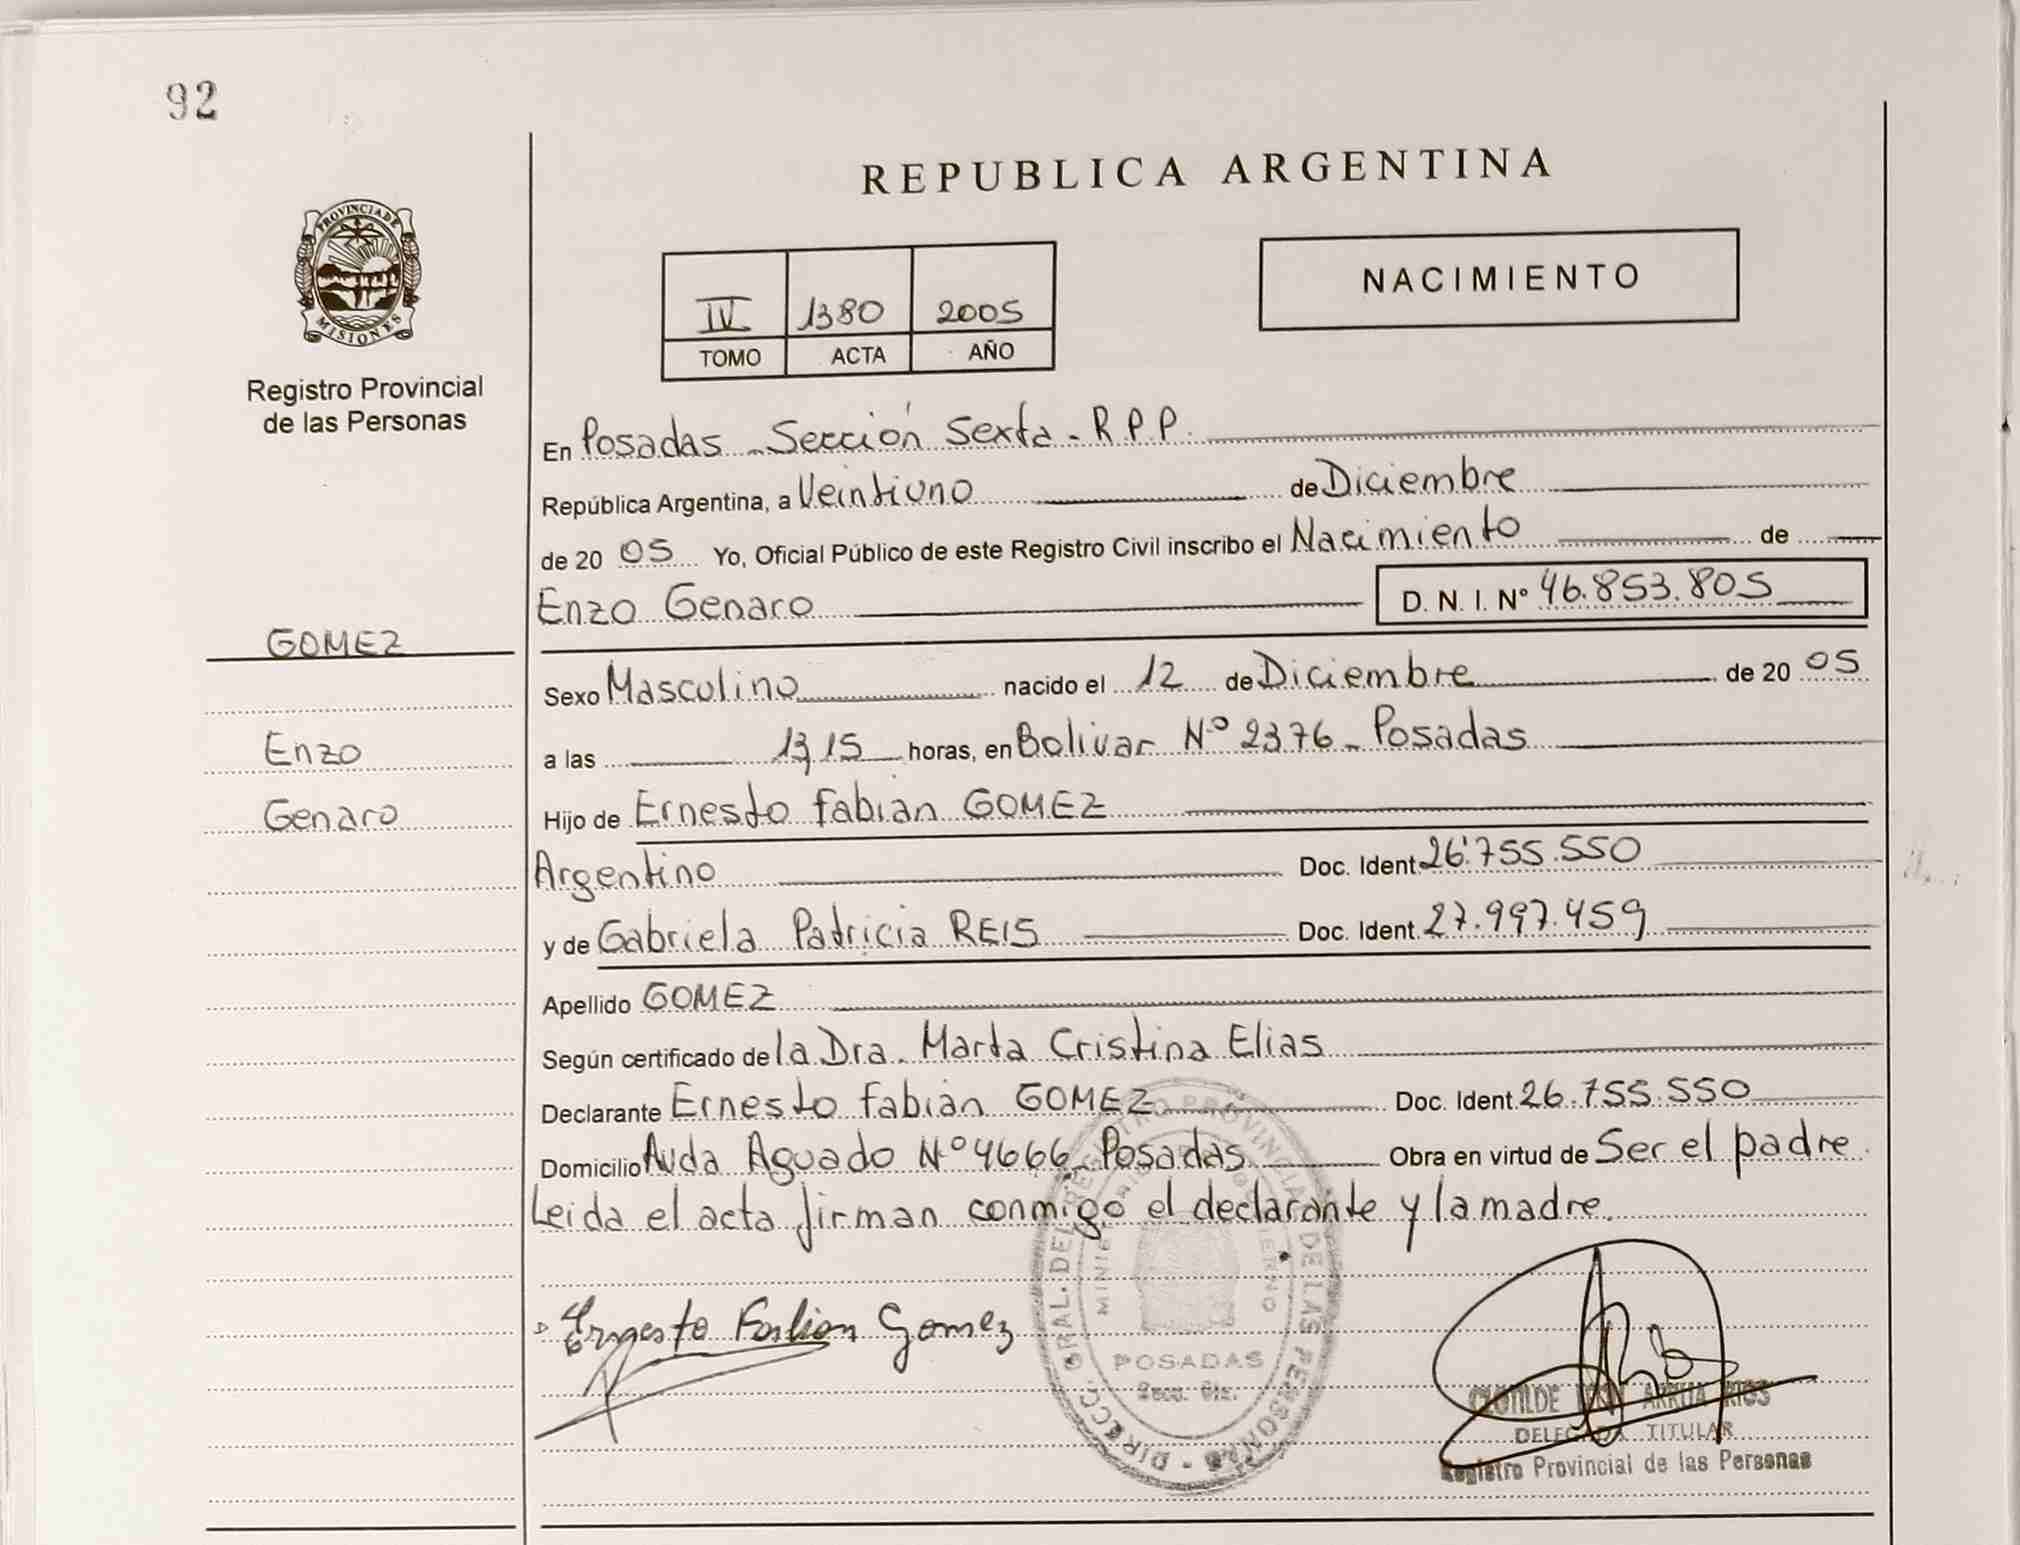 92
PROVINCIA DE
MISIONES
Registro Provincial
de las Personas
REPUBLICA ARGENTINA
IV 1380 2005
TOMO ACTA AÑO
NACIMIENTO
En Posadas - Sección Sexta - R.P.P.
República Argentina, a Veintiuno de Diciembre
de 20 05 Yo, Oficial Público de este Registro Civil inscribo el Nacimiento de
Enzo Genaro D. N. I. Nº 46.853.805
GOMEZ
Enzo
Genaro
Sexo Masculino nacido el 12 de Diciembre de 20 05
a las 13,15 horas, en Bolivar Nº 2376 - Posadas
Hijo de Ernesto Fabian GOMEZ
Argentino Doc. Ident. 26.755.550
y de Gabriela Patricia REIS Doc. Ident. 27.997.459
Apellido GOMEZ
Según certificado de la Dra. Marta Cristina Elias
Declarante Ernesto Fabián GOMEZ Doc. Ident. 26.755.550
Domicilio Avda Aguado Nº 4666 - Posadas Obra en virtud de Ser el padre.
Leida el acta firman conmigo el declarante y la madre.
Ernesto Fabian Gomez
DIRECC. GRAL. DEL REGISTRO PROVINCIAL DE LAS PERSONAS
POSADAS
CLOTILDE ARRUA RIOS
DELEGADA TITULAR
Registro Provincial de las Personas